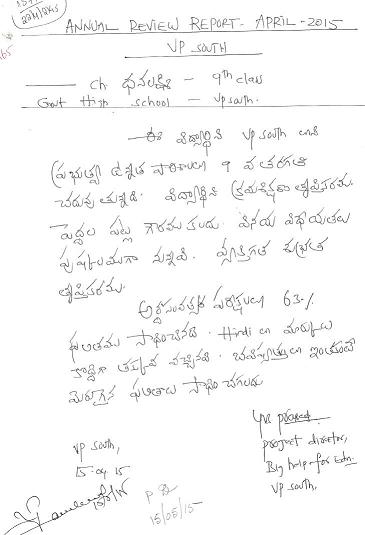 22/4/2015
ANNUAL REVIEW REPORT - APRIL - 2015
VP SOUTH
ch ధనలక్ష్మి - 9th class
Govt High school - Vp south.
ఈ విద్యార్థిని VP south లోని
ప్రభుత్వ ఉన్నత పాఠశాలలో 9 వ తరగతి
చదువుతున్నది. విద్యార్థిని క్రమశిక్షణ తృప్తికరము.
పెద్దల పట్ల గౌరవము కలదు. వినయ విధేయతలు
పుష్కలముగా నున్నవి. వ్యక్తిగత శుభ్రత
తృప్తికరము.
అర్ధసంవత్సర పరీక్షలలో 63%
ఫలితము సాధించినది. Hindi లో మార్కులు
కొద్దిగా తక్కువ వచ్చినవి. భవిష్యత్తులో ఇంతకంటే
మెరుగైన ఫలితాలు సాధించగలదు
VP south,
15-04-15
project director,
Big help for Edn.
VP south,
15/05/15